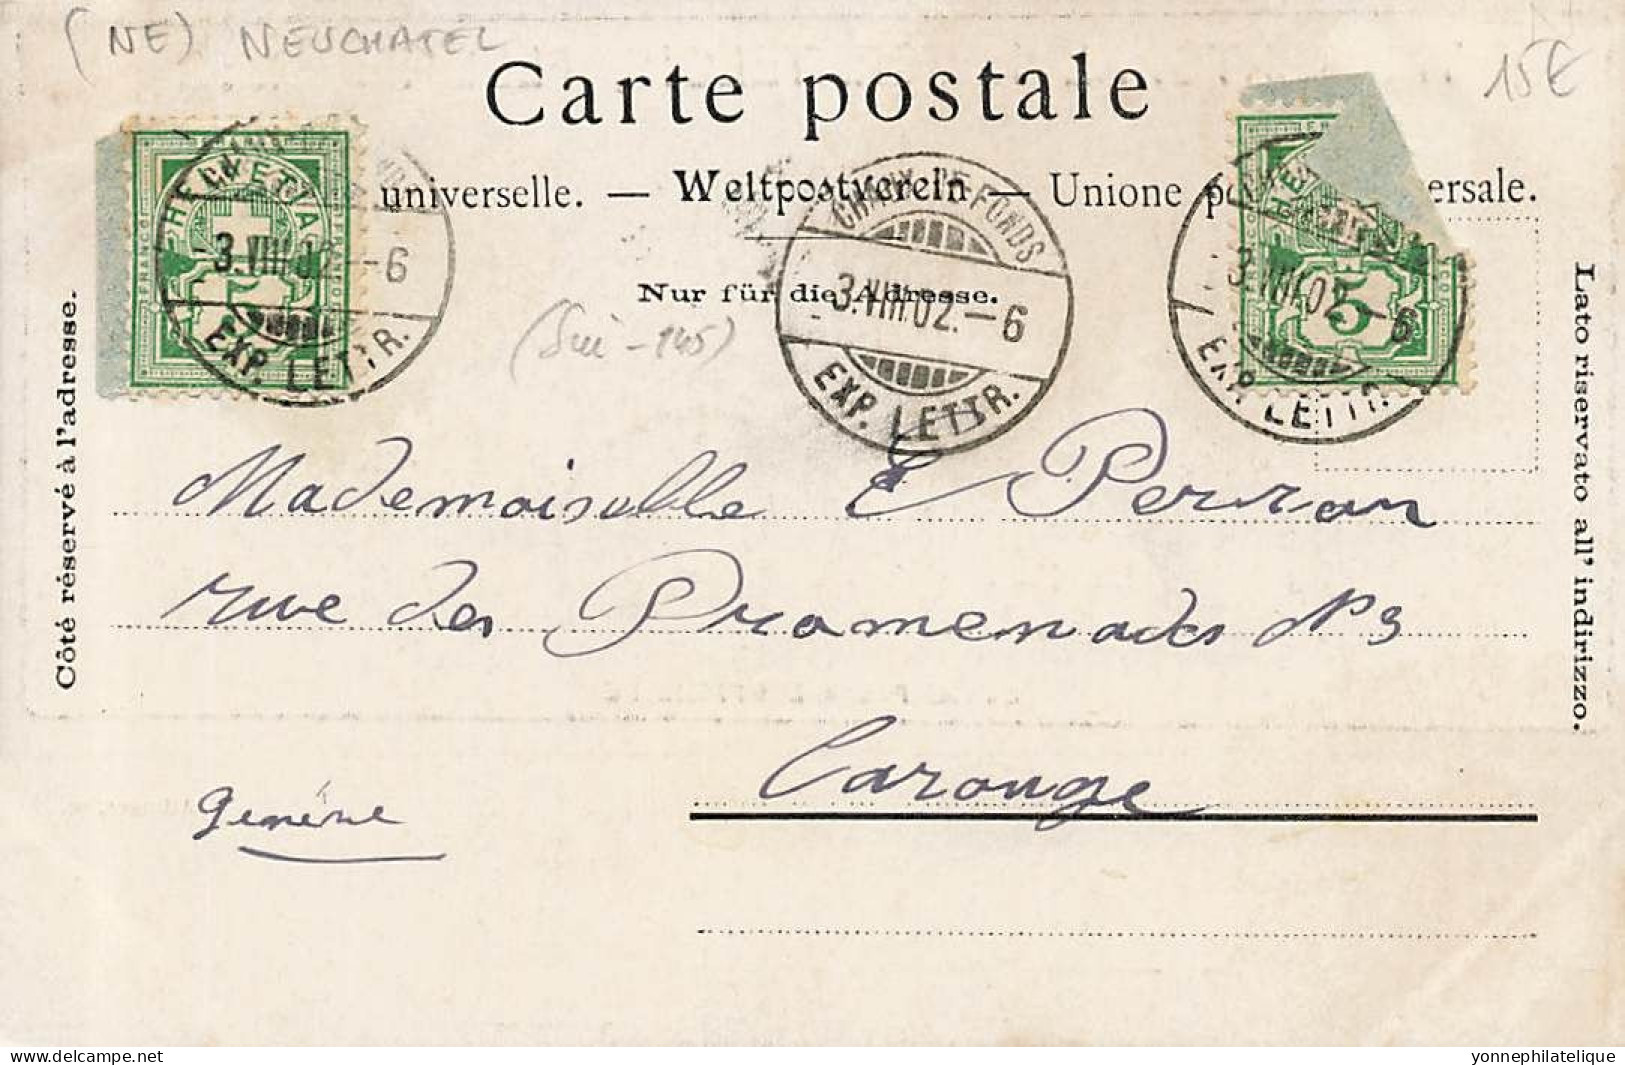 (NE) NEUCHATEL
15€
Carte postale
universelle. — Weltpostverein — Unione po ersale.
Nur für die Adresse.
HELVETIA
FRANCO
5
3.VIII.02.-6
EXP. LETTR.
CHAUX-DE-FONDS
3.VIII.02.-6
EXP. LETTR.
5
3.VIII.02.-6
EXP. LETTR.
Côté réservé à l'adresse.
Lato riservato all' indirizzo.
Mademoiselle E Perron
rue des Promenades N 3
Carouge
Genève
delcampe.net
yonnephilatelique